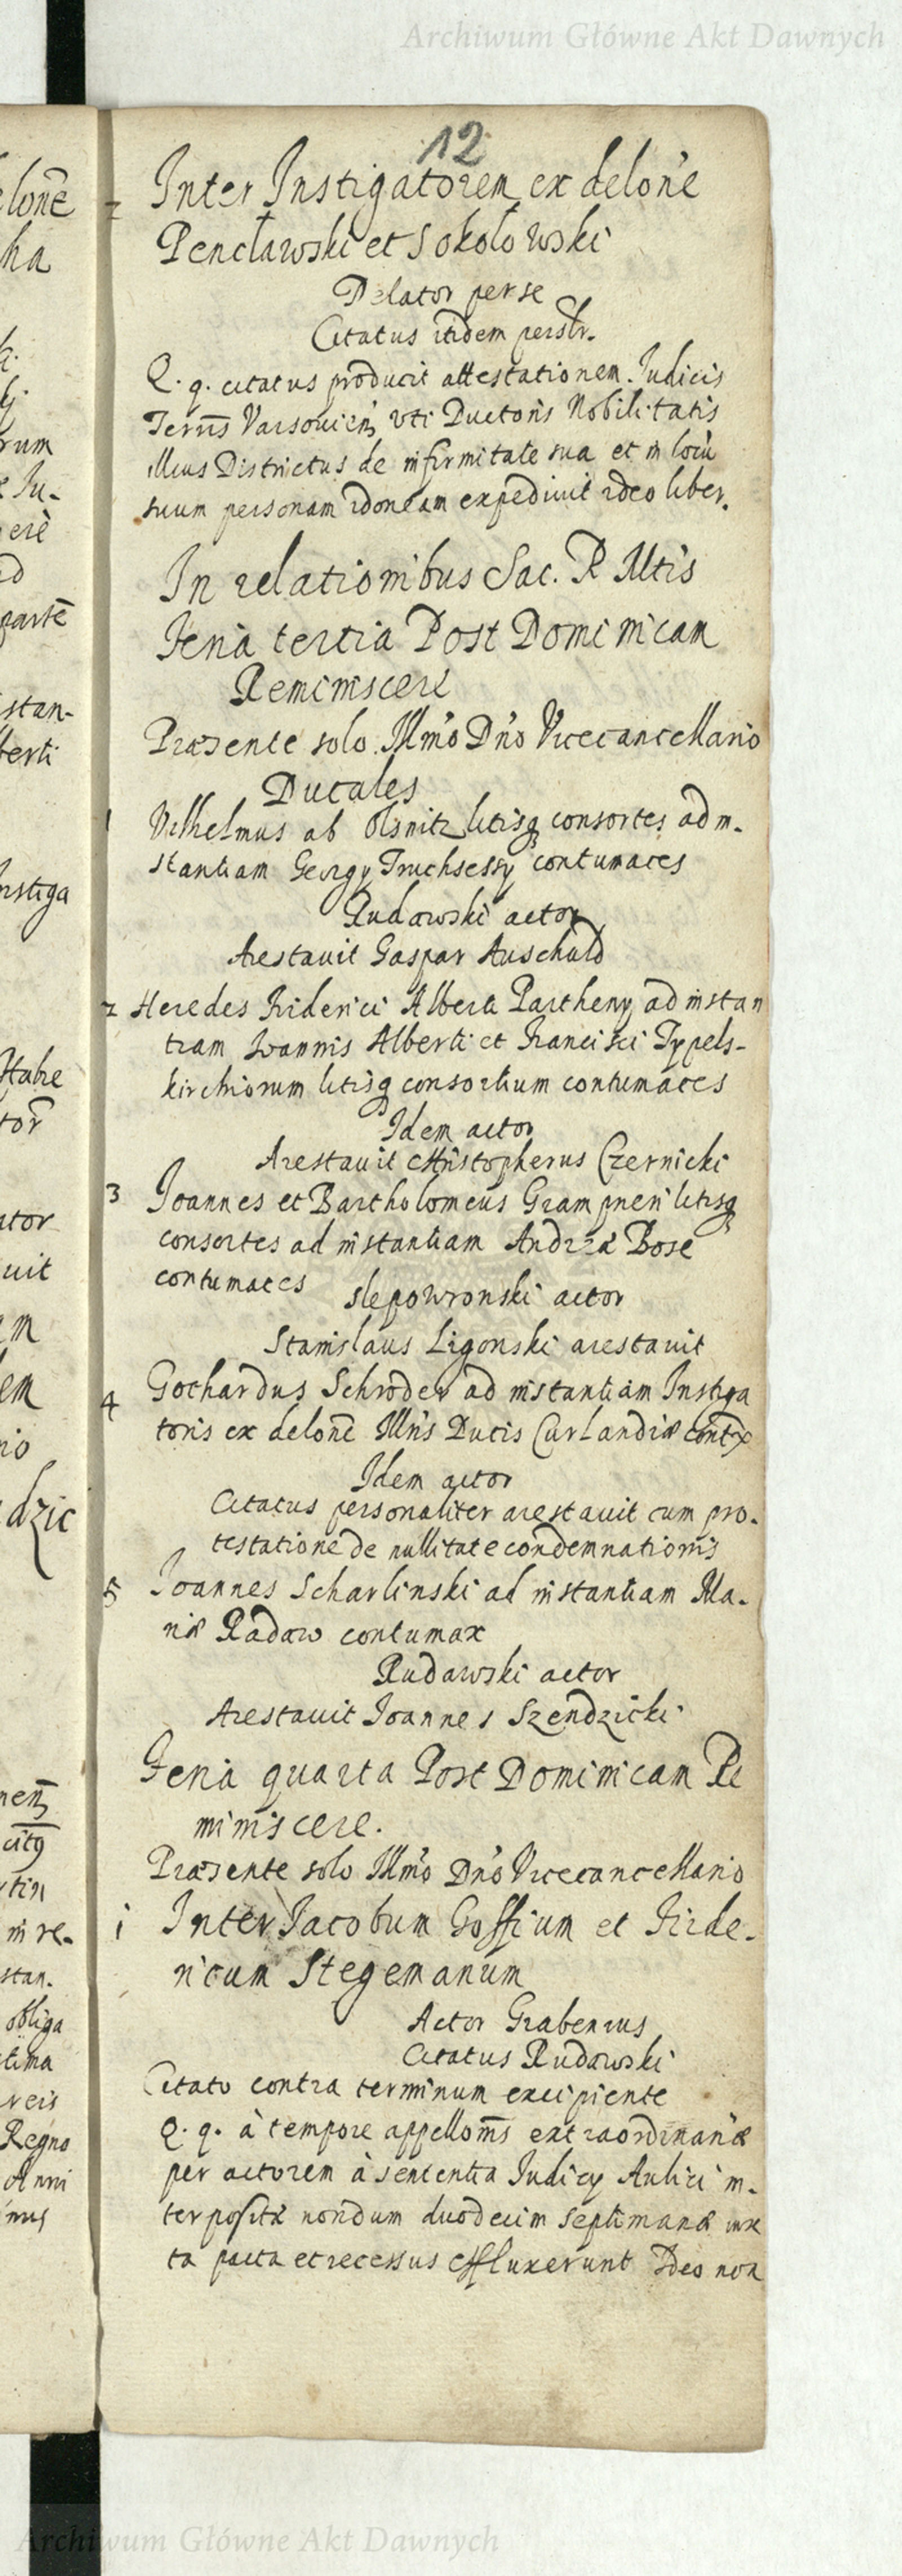 Archiwum Główne Akt Dawnych
12
2 Inter Instigatorem ex delone
Penclawski et Sokolowski
Delator per se
Citatus itidem per se
Q. q. citatus producit attestationem Judicis
Terris Varsovien uti Ductoris Nobilitatis
illius Districtus de infirmitate sua et in locu
suum personam idoneam expedivit ideo liber.
In relationibus Sac. R Mtis
Feria tertia Post Dominicam
Reminiscere
Præsente solo Illmo Dno Vicecancellario
Ducales
1 Vilhelmus ab Olsnitz litisq consortes ad in-
stantiam Georgy Truchsessy contumaces
Rudawski actor
Arestavit Gaspar Auschuld
2 Heredes Friderici Alberti Partheny ad instan
tiam Ioannis Alberti et Francisci Typels-
kirchiorum litisq consortium contumaces
Idem actor
Arestavit Christopherus Czernicki
3 Joannes et Bartholomeus Grampneri litisq
consortes ad instantiam Andreæ Bose
contumaces Slepowronski actor
Stanislaus Ligonski arestavit
4 Gothardus Schroder ad instantiam Instiga
toris ex delone Illris Ducis Curlandiæ contx
Idem actor
Citatus personaliter arestavit cum pro-
testatione de nullitate condemnationis
5 Joannes Scharlinski ad instantiam Ma-
riæ Radaw contumax
Rudawski actor
Arestavit Joannes Szendzicki
Feria quarta Post Dominicam Re
miniscere.
Præsente solo Illmo Dno Vicecancellario
i Inter Jacobum Goffium et Fride-
ricum Stegemanum
Actor Grabenius
Citatus Rudawski
Citato contra terminum excipiente
Q. q. à tempore appellonis extraordinariæ
per actorem à sententia Judicy Aulici in-
terpositæ nondum duodecim septimanæ iux
ta pacta et recessus effluxerunt Ideo non
Archiwum Główne Akt Dawnych